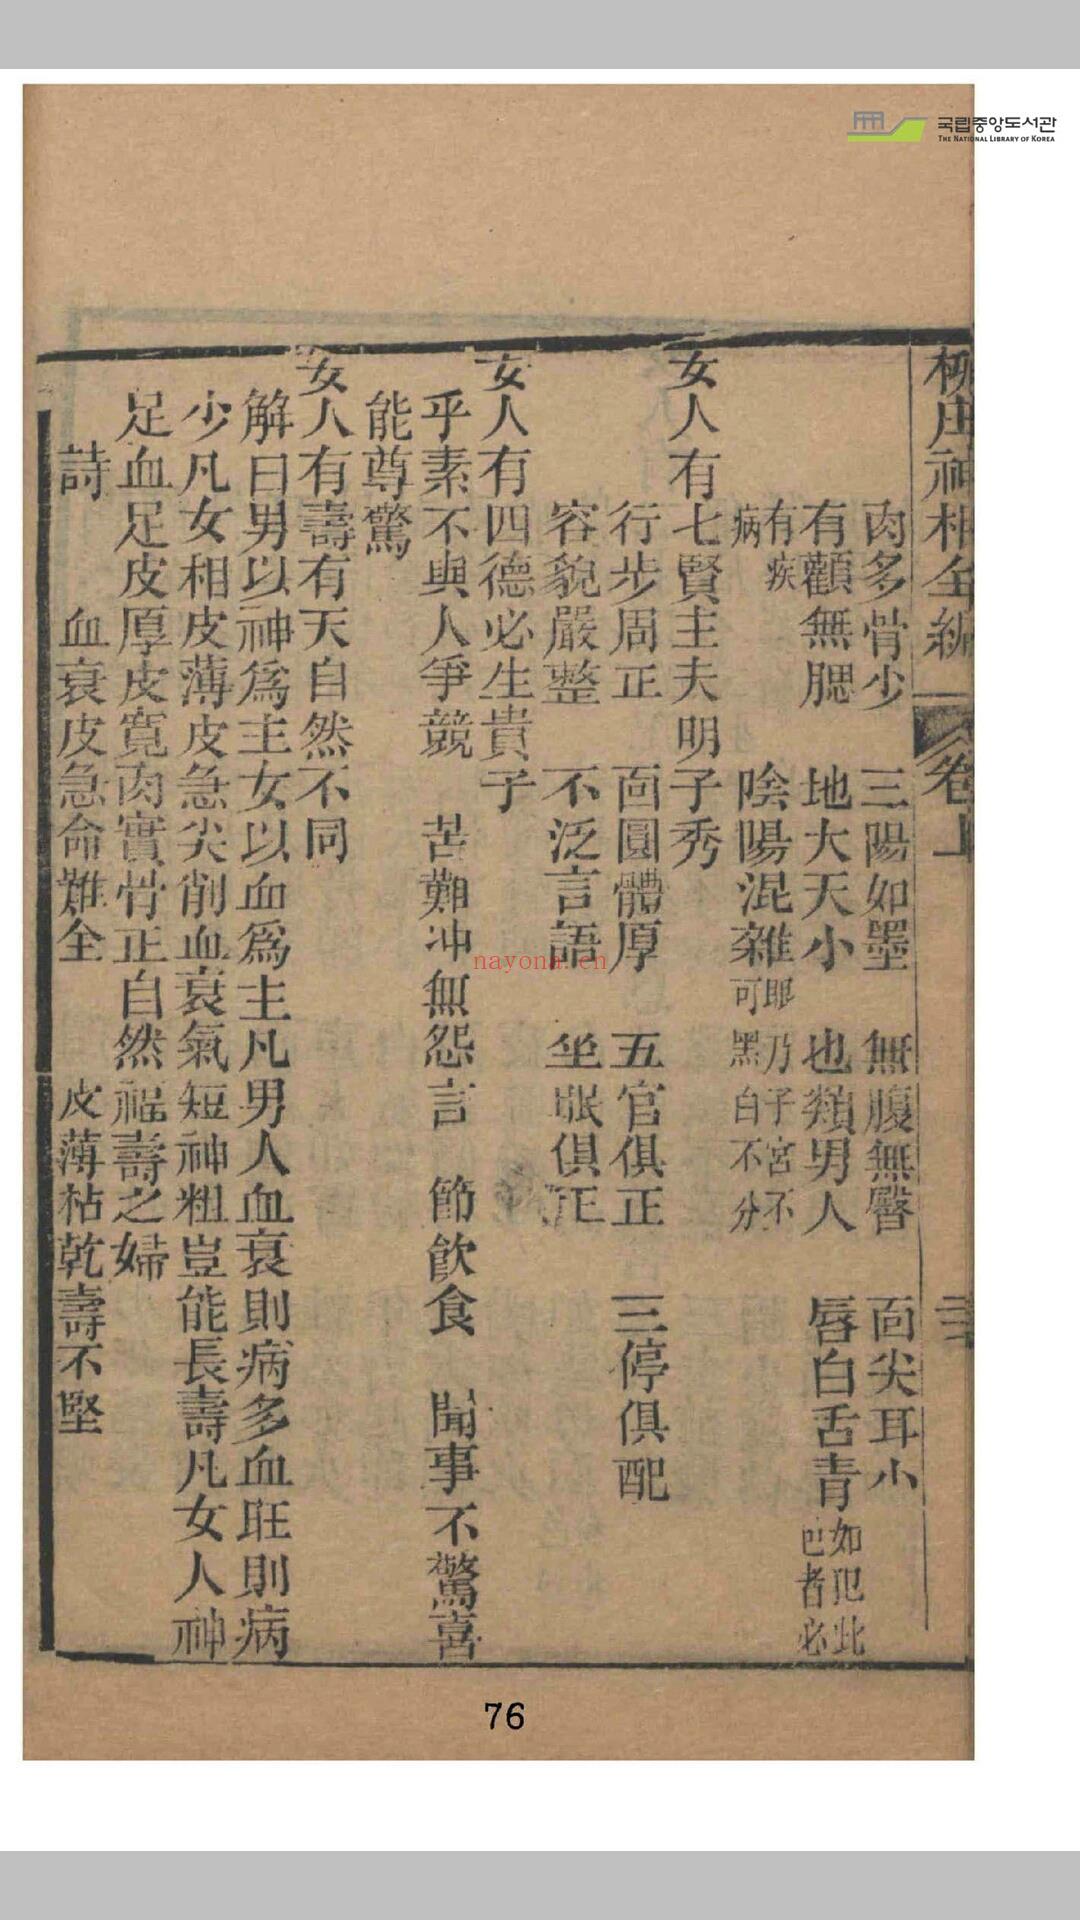 국립중앙도서관
THE NATIONAL LIBRARY OF KOREA
柳庄神相全編 卷上
肉多骨少 三陽如墨 無腹無臀 面尖耳小
有顴無腮 地大天小 也類男人 唇白舌青 如犯此巴者必
有疾病 陰陽混雜 眼乃子宮不可黑白不分
女人有七賢主夫明子秀
行步周正 面圓體厚 五官俱正 三停俱配
容貌嚴整 不泛言語 坐眠俱正
女人有四德必生貴子
乎素不與人爭競 苦難冲無怨言 節飲食 聞事不驚喜
能尊驚
女人有壽有天自然不同
解曰男以神爲主女以血爲主凡男人血衰則病多血旺則病
少凡女相皮薄皮急尖削血衰氣短神粗豈能長壽凡女人神
足血足皮厚皮寬肉實骨正自然福壽之婦
詩 血衰皮急命難全 皮薄枯乾壽不堅
nayona.cn
76